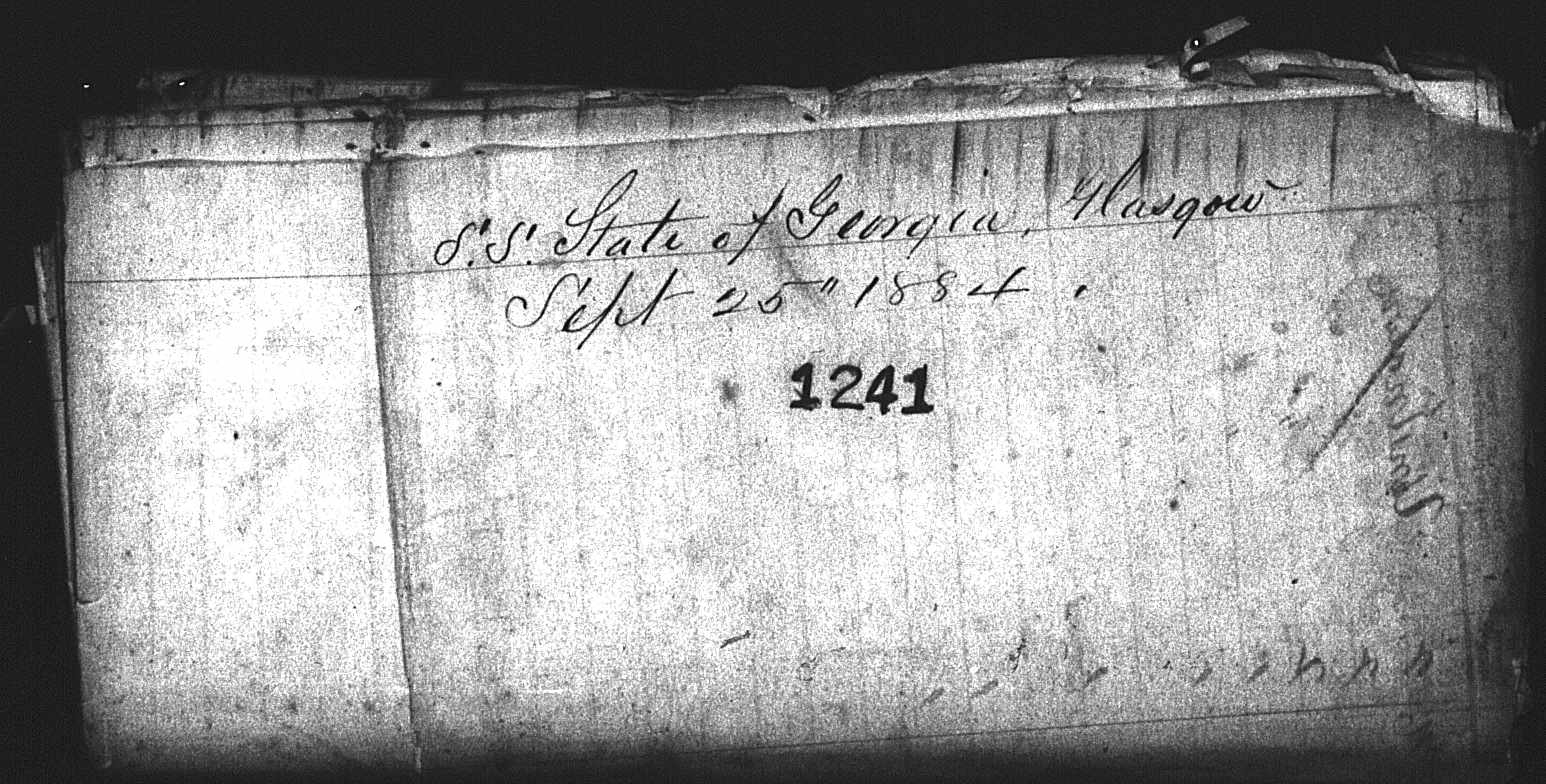 S.S. State of Georgia, Glasgow
Sept 25" 1884.
1241